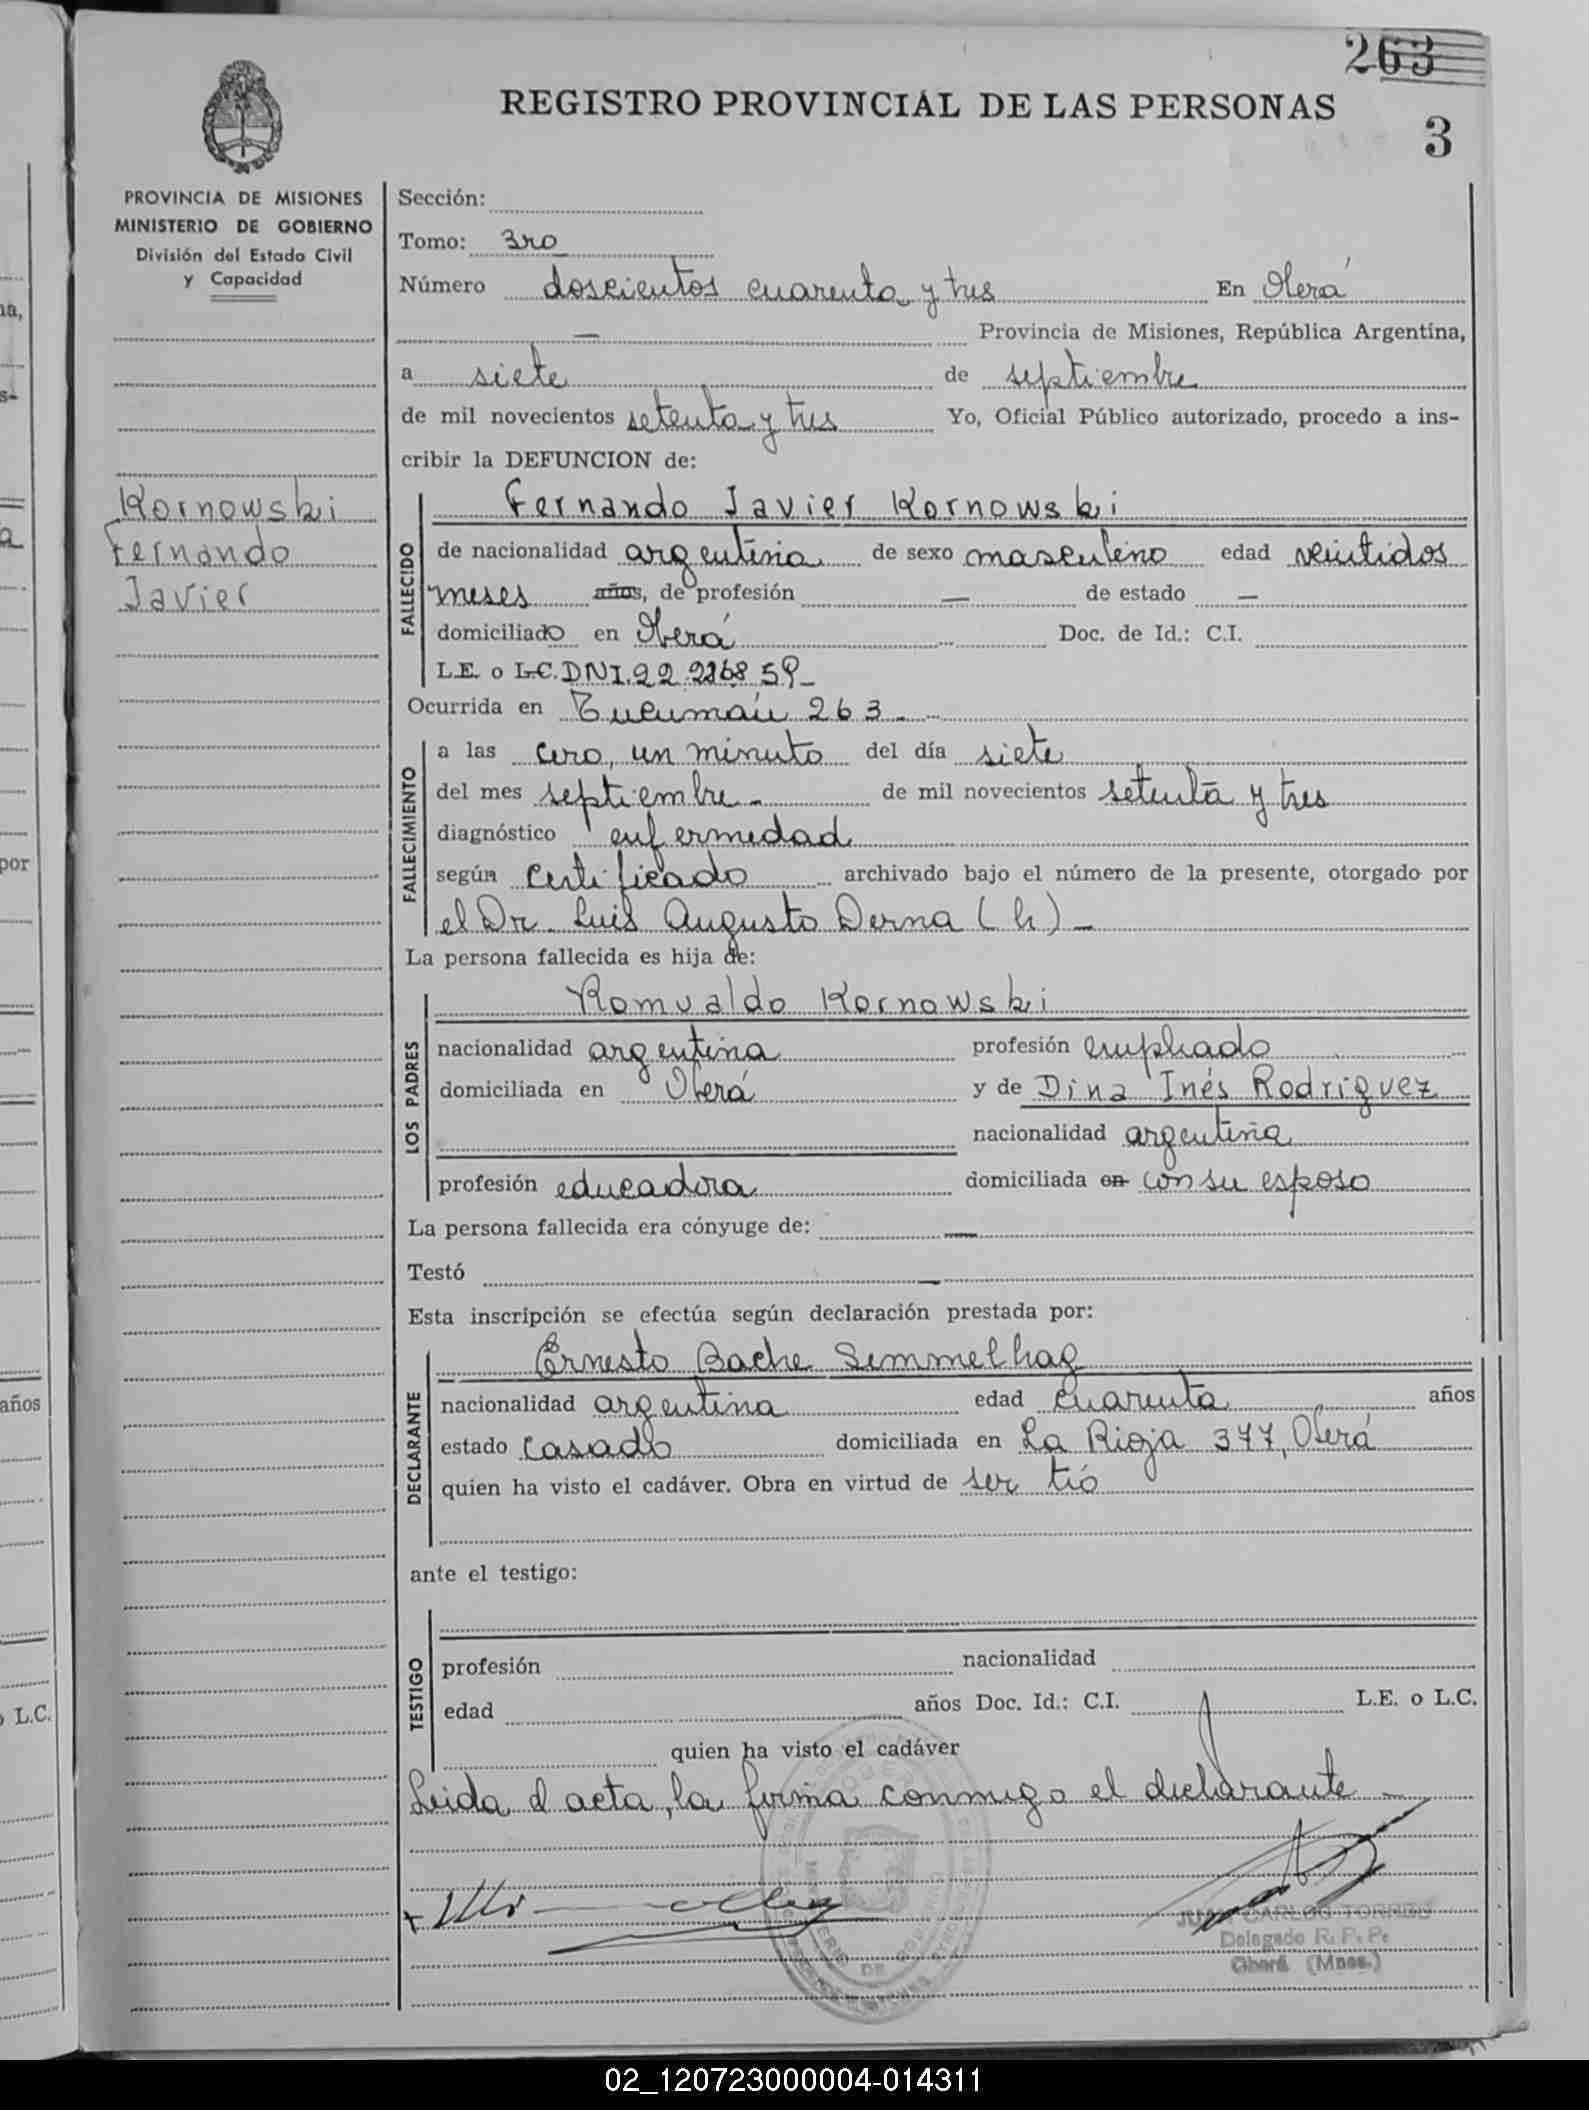 263
REGISTRO PROVINCIAL DE LAS PERSONAS
3
PROVINCIA DE MISIONES
MINISTERIO DE GOBIERNO
División del Estado Civil
y Capacidad
Kornowski
Fernando
Javier
Sección:
Tomo: 3ro
Número doscientos cuarenta y tres En Oberá
— Provincia de Misiones, República Argentina,
a siete de septiembre
de mil novecientos setenta y tres Yo, Oficial Público autorizado, procedo a ins-
cribir la DEFUNCION de:
FALLECIDO
Fernando Javier Kornowski
de nacionalidad argentina de sexo masculino edad veintidos
meses años, de profesión — de estado —
domiciliado en Oberá Doc. de Id.: C.I.
L.E. o L.C. DNI. 22.
Ocurrida en Tucumán 263 -
FALLECIMIENTO
a las cero, un minuto del día siete
del mes septiembre - de mil novecientos setenta y tres
diagnóstico enfermedad
según certificado archivado bajo el número de la presente, otorgado por
el Dr. Luis Augusto Derna (h) -
La persona fallecida es hija de:
LOS PADRES
Romualdo Kornowski
nacionalidad argentina profesión empleado
domiciliada en Oberá y de Dina Inés Rodriguez
nacionalidad argentina
profesión educadora domiciliada en con su esposo
La persona fallecida era cónyuge de: —
Testó —
Esta inscripción se efectúa según declaración prestada por:
DECLARANTE
Ernesto Bache Simmelhag
nacionalidad argentina edad cuarenta años
estado casado domiciliada en La Rioja 377, Oberá
quien ha visto el cadáver. Obra en virtud de ser tío
ante el testigo:
TESTIGO
profesión nacionalidad
edad años Doc. Id.: C.I. L.E. o L.C.
quien ha visto el cadáver
Leida el acta, la firma conmigo el declarante -
JUAN CARLOS TORRES
Delegado R. P. P.
Oberá (Mnes.)
na,
por
años
o L.C.
02_120723000004-014311